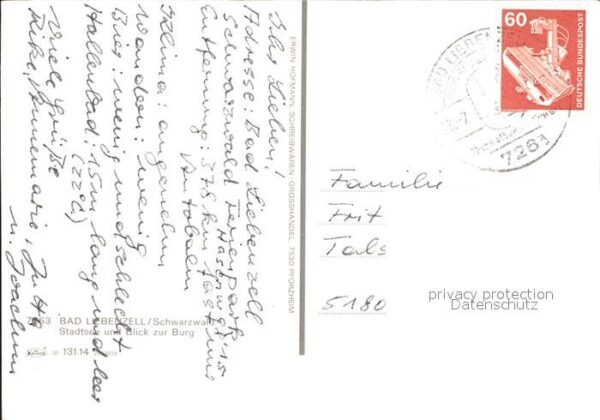 Ihr Lieben!
Adresse: Bad Liebenzell
Schwarzwald Ferienpark
Haus Nr. 515
Entfernung: 378 km fast nur
Autobahn
Klima: angenehm
Wandern: wenig
Bier: wenig und schlecht
Hallenbad: 15 m lang und leer
(22°C)
Viele Grüße
Heike, Annemarie, Jutta
u. Joachim
ERWIN HOFMANN, SCHREIBWAREN GROSSHANDEL, 7530 PFORZHEIM
7263 BAD LIEBENZELL/Schwarzwald
Stadtsee und Blick zur Burg
131.14
60
DEUTSCHE BUNDESPOST
BAD LIEBENZELL
7263
Familie
Frit
Tals
5180
privacy protection
Datenschutz